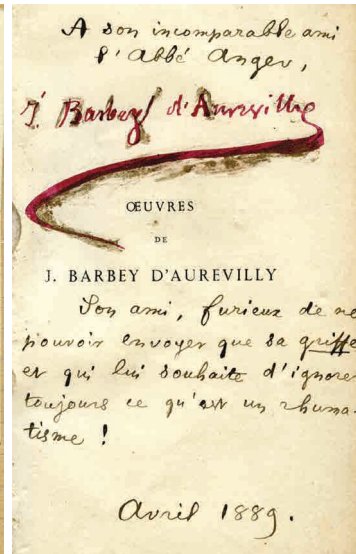 A son incomparable ami
l'Abbé Anger,
J. Barbey d'Aurevilly
ŒUVRES
DE
J. BARBEY D'AUREVILLY
Son ami, furieux de ne
pouvoir envoyer que sa griffe
et qui lui souhaite d'ignorer
toujours ce qu'est un rhuma-
tisme !
Avril 1889.